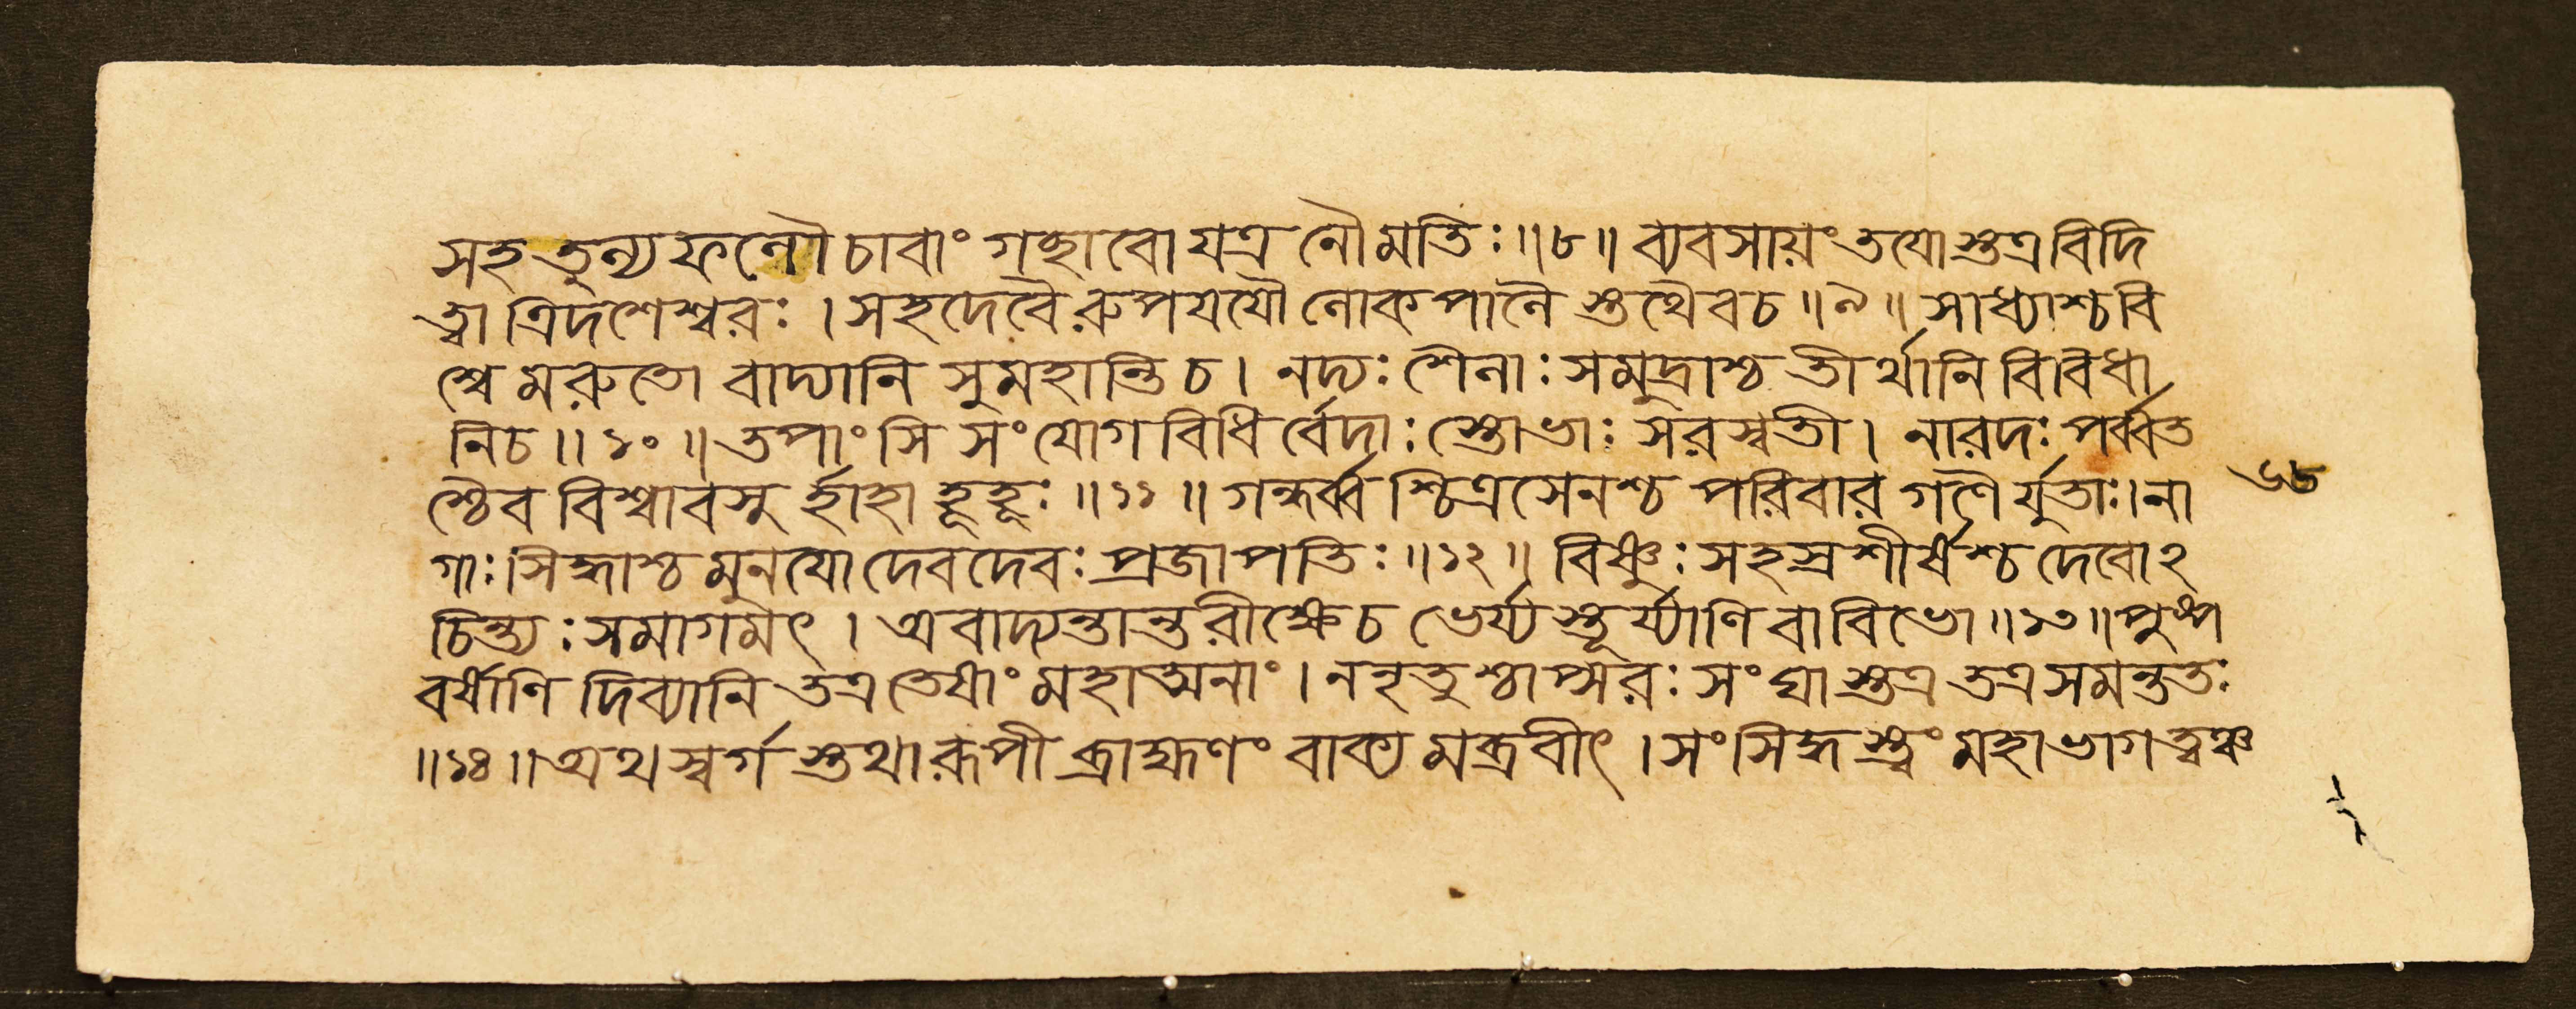 সহ তুল্য ফলৌ চাবাং গচ্ছাবো যত্র নৌ মতিঃ ॥ ৮ ॥ ব্যবসায়ং তযো স্তত্র বিদি
ত্বা ত্রিদশেশ্বরঃ । সহ দেবৈ রুপযযৌ লোকপালৈ স্তথৈব চ ॥ ৯ ॥ সাধ্যাশ্চ বি
শ্বে মরুতো বাদ্যানি সুমহান্তি চ । নদ্যঃ শৈলাঃ সমুদ্রাশ্চ তীর্থানি বিবিধা
নি চ ॥ ১০ ॥ তপাংসি সংযোগ বিধি র্বেদাঃ স্তোভাঃ সরস্বতী । নারদঃ পর্ব্বত
শ্চৈব বিশ্বাবসু র্হাহা হূহূঃ ॥ ১১ ॥ গন্ধর্ব্ব শ্চিত্রসেনশ্চ পরিবার গণৈ র্যুতাঃ । না
৬৮
গাঃ সিদ্ধাশ্চ মুনযো দেবদেবঃ প্রজাপতিঃ ॥ ১২ ॥ বিষ্ণুঃ সহস্রশীর্ষশ্চ দেবোঽ
চিন্ত্যঃ সমাগমৎ । অবাদ্যন্তান্তরীক্ষে চ ভের্য্য স্তূর্য্যাণি বা বিভো ॥ ১৩ ॥ পুষ্প
বর্ষাণি দিব্যানি তত্র তেষাং মহাত্মনাং । ননৃতুশ্চাপ্সরঃ সংঘা স্তত্র তত্র সমন্ততঃ
॥ ১৪ ॥ অথ স্বর্গ স্তথা রূপী ব্রাহ্মণং বাক্য মব্রবীৎ । সংসিদ্ধ স্ত্বং মহাভাগ ত্বঞ্চ